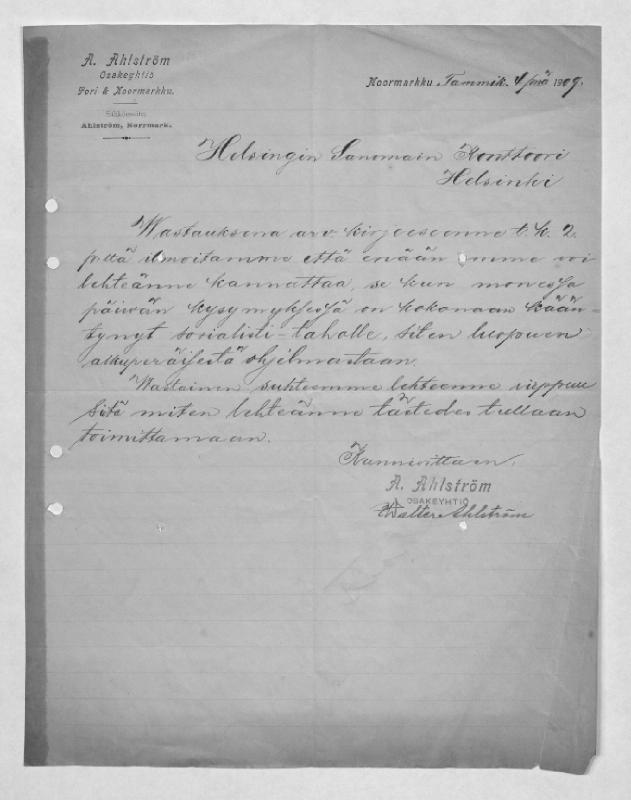 A. Ahlström
Osakeyhtiö
Pori & Noormarkku.
Sähköosoite:
Ahlström, Norrmark.
Noormarkku, Tammik. 4 p:nä 1909.
Helsingin Sanomain Konttoori
Helsinki
Wastauksena arv. kirjeeseenne t. k. 2
p:ltä ilmoitamme että enään emme voi
lehteänne kannattaa, se kun monessa
päiwän kysymyksessä on kokonaan kään-
tynyt sosialisti-taholle, siten luopuen
alkuperäisestä ohjelmastaan.
Wastainen suhteemme lehteenne riippuu
siitä miten lehteänne tästedes tullaan
toimittamaan.
Kunnioittaen,
A. Ahlström
OSAKEYHTIÖ
Walter Ahlström